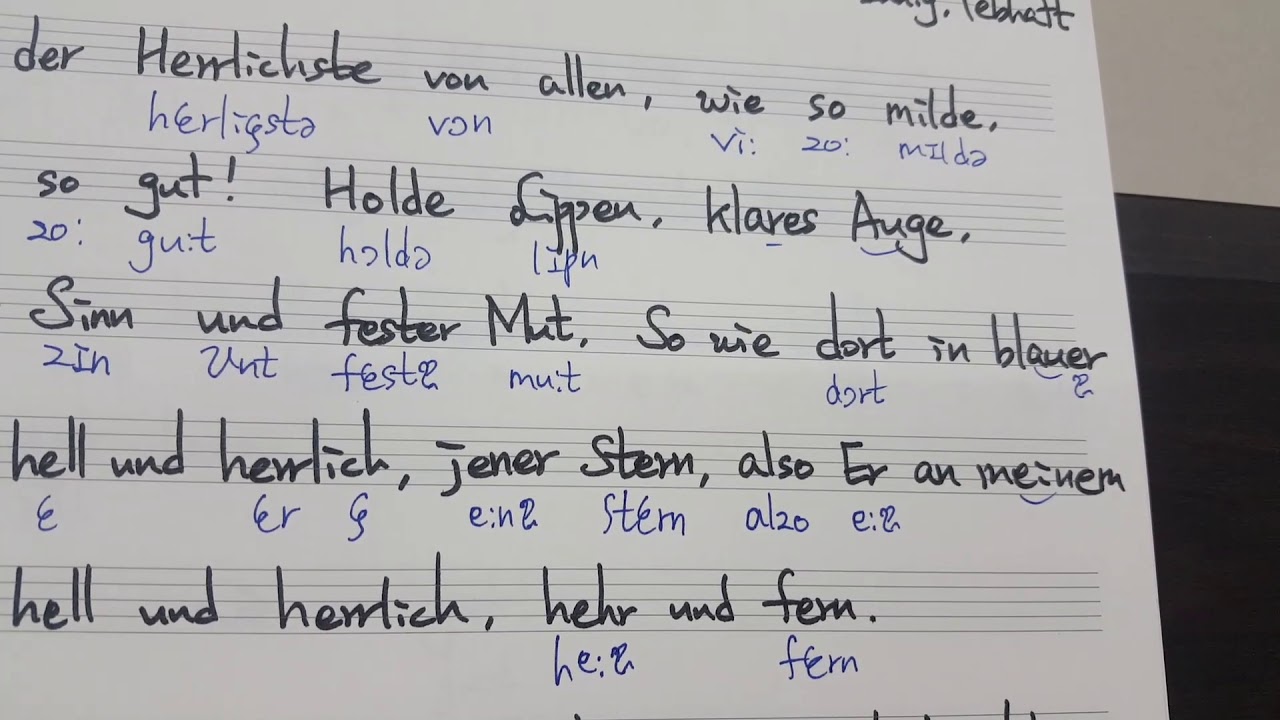 lebhaft
der Herrlichste von allen, wie so milde,
hɛrlIçstə vɔn vi: zo: mIldə
so gut! Holde Lippen, klares Auge,
zo: gu:t hɔldə lIpn
Sinn und fester Mut. So wie dort in blauer
zIn ʊnt fɛstɐ mu:t dɔrt ɐ
hell und herrlich, jener Stern, also Er an meinem
ɛ ɛr ç e:nɐ ʃtɛrn alzo e:ɐ
hell und herrlich, hehr und fern.
he:ɐ fɛrn